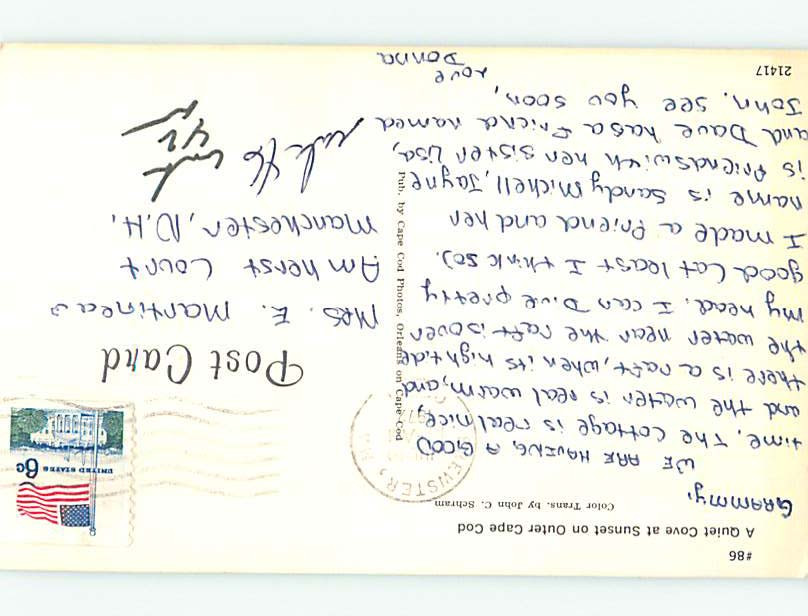 #86
A Quiet Cove at Sunset on Outer Cape Cod
Color Trans. by John C. Schram
GRAMMY,
WE ARE HAVING A GOOD
time. The cottage is real nice,
and the water is real warm, and
there is a raft, when its high tide
the water near the raft is over
my head. I can Dive pretty
good (at least I think so).
I made a friend and her
name is Sandy Michell, Jayne
is friends with her sister Lisa,
and Dave has a friend named
John. see you soon,
Love
Donna
21417
Pub. by Cape Cod Photos, Orleans on Cape Cod
EWSTER, M
UNITED STATES 6c
Post Card
Mrs. E. Martineau
Amherst Court
Manchester, N.H.